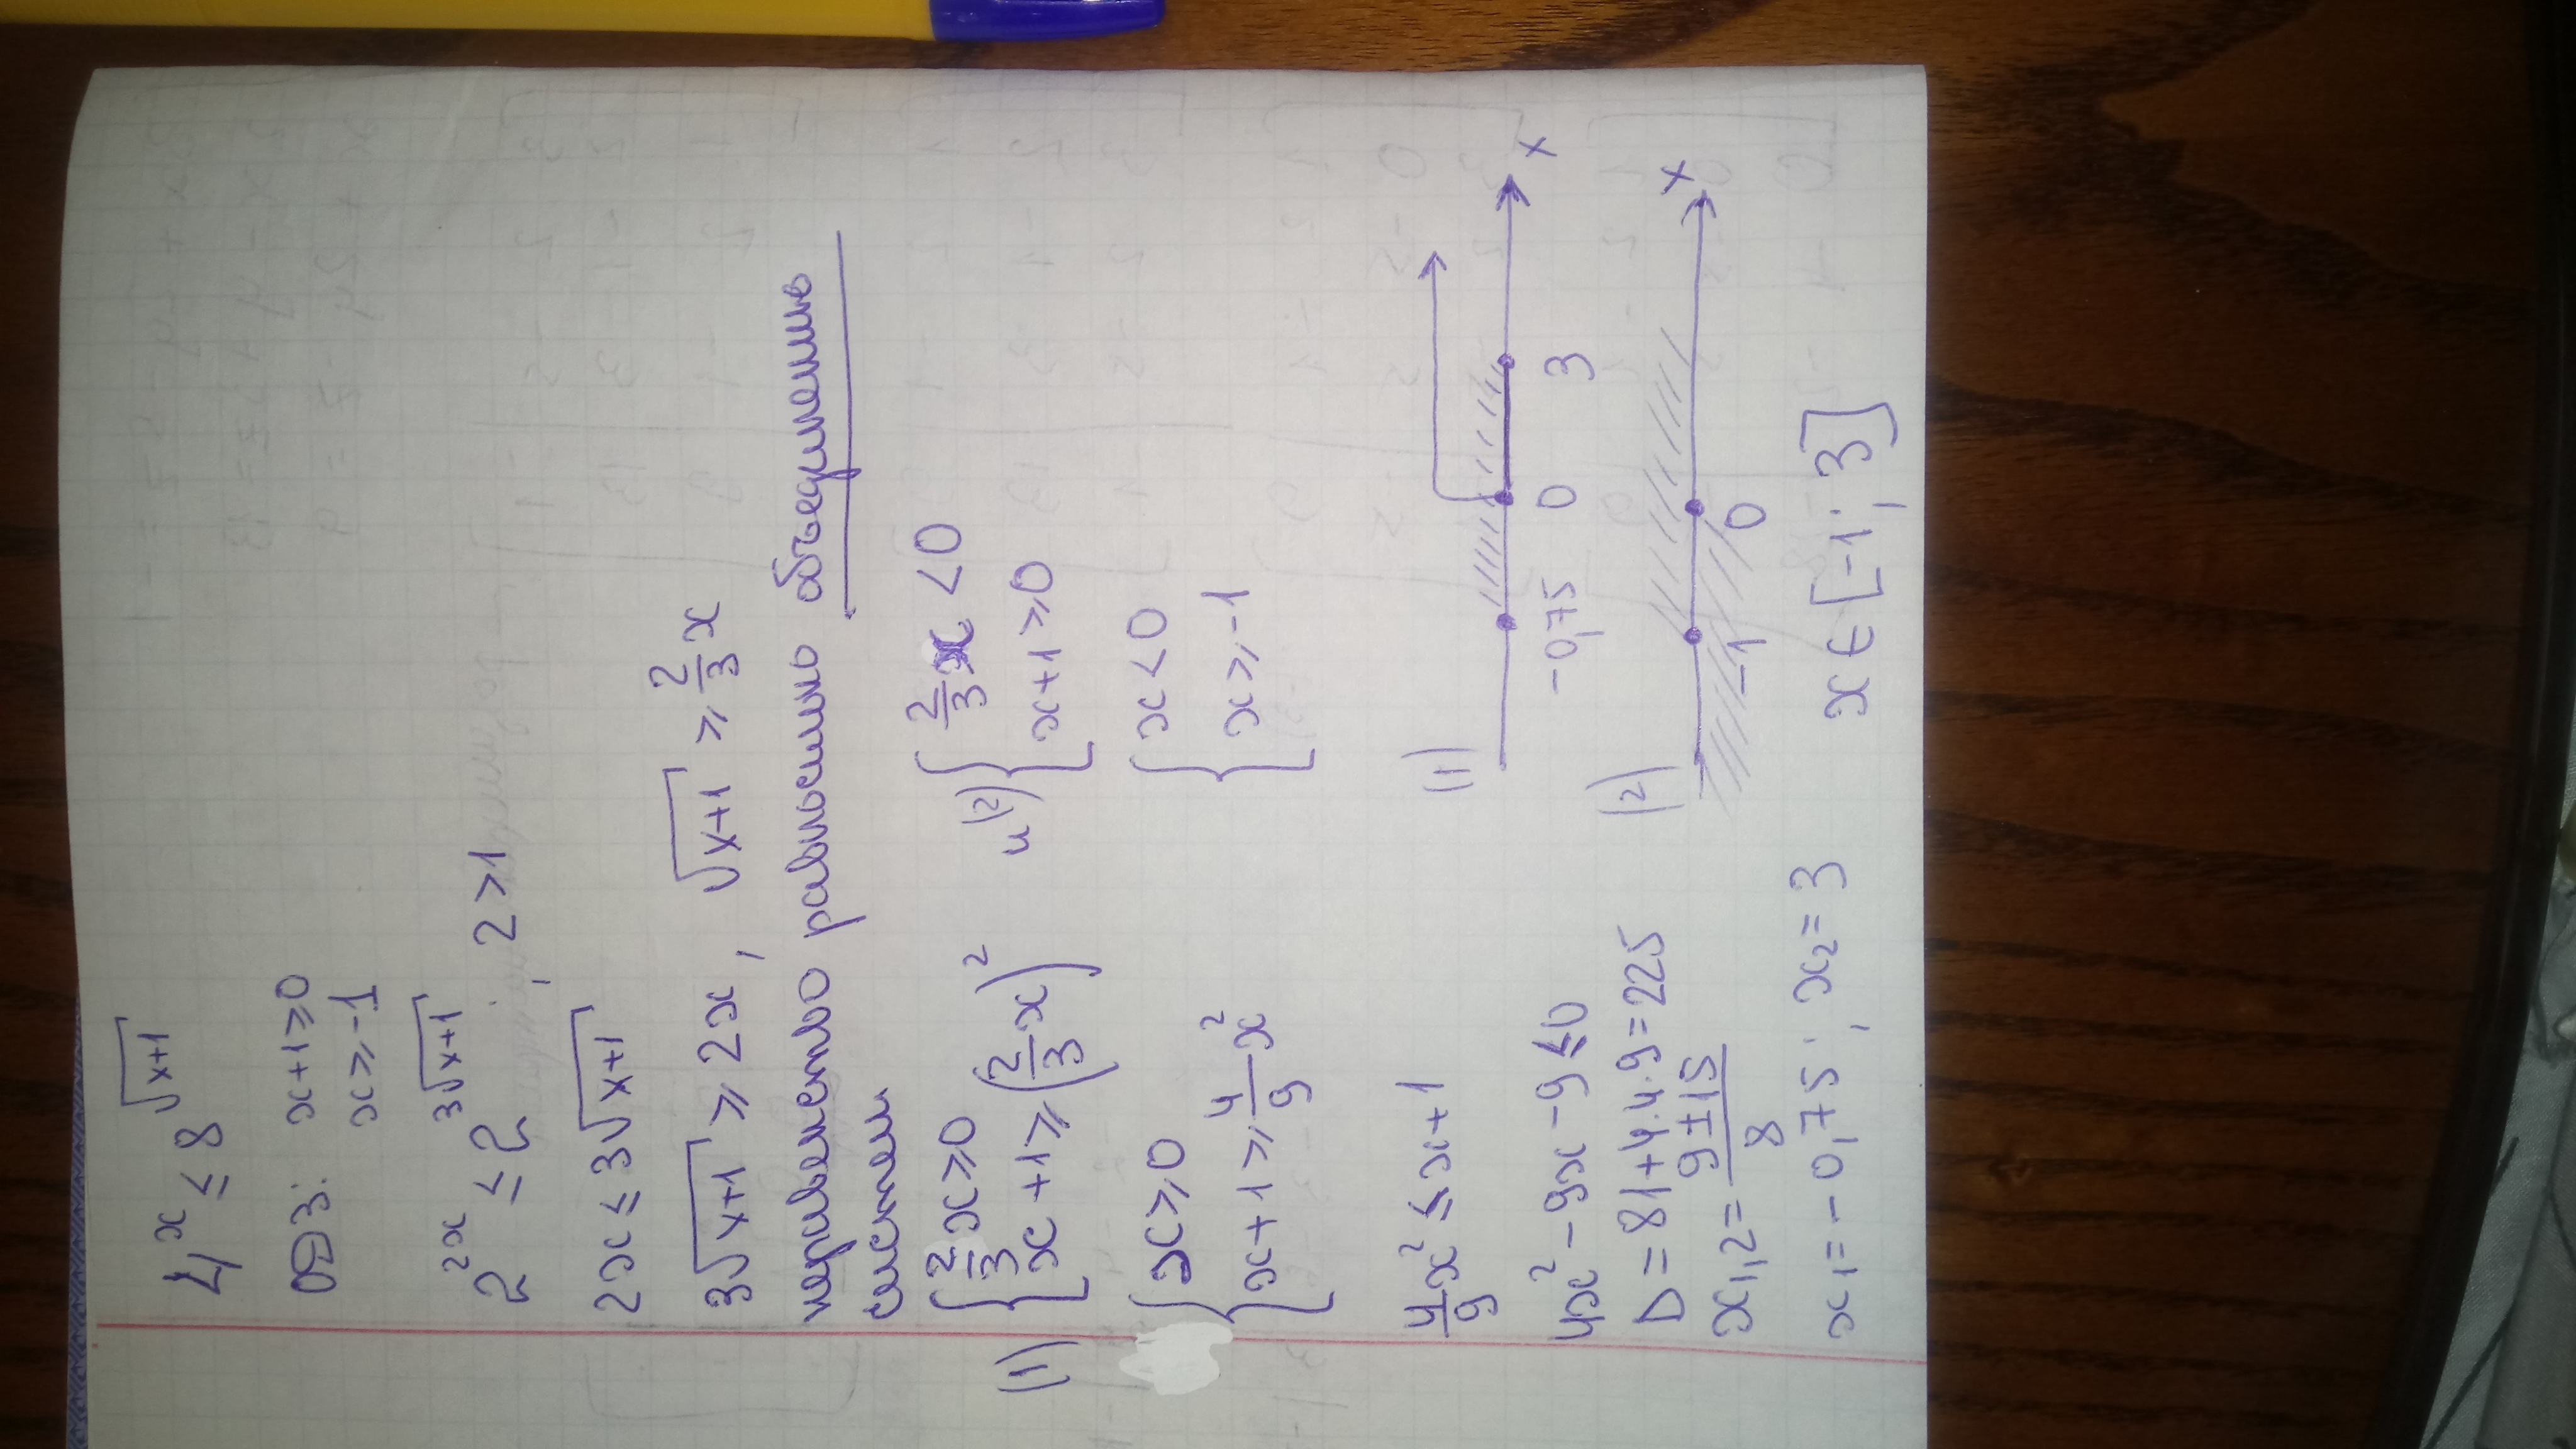 4^x ≤ 8^√(x+1)
ОДЗ: x+1≥0
x≥-1
2^2x ≤ 2^3√(x+1), 2>1
2x ≤ 3√(x+1)
3√(x+1) ≥ 2x, √(x+1) ≥ 2/3 x
неравенство равносильно объединению
систем
(1) { 2/3 x≥0 и (2) { 2/3 x <0
x+1≥(2/3 x)^2 x+1≥0
{ x≥0 { x<0
x+1≥ 4/9 x^2 x≥-1
4/9 x^2 ≤ x+1 (1)
-0,75 0 3 x
4x^2-9x-9≤0
D=81+4·4·9=225 (2)
x1,2= (9±15)/8 -1 0 x
x1=-0,75; x2=3 x∈[-1; 3]